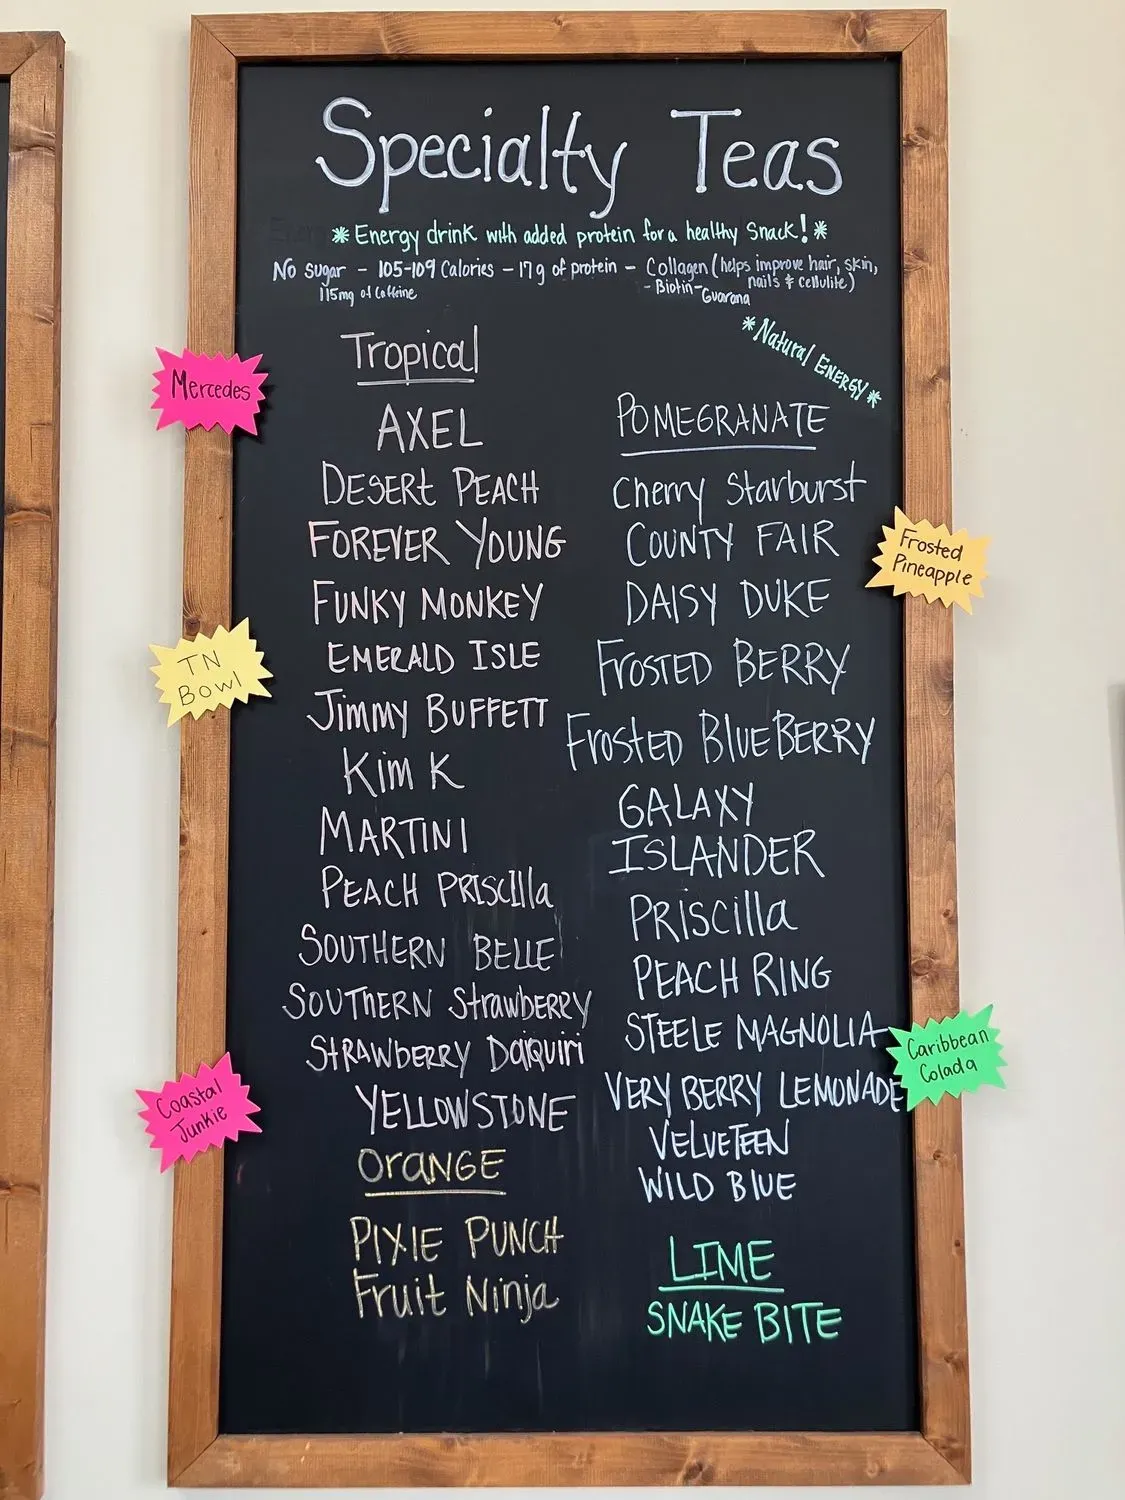 Specialty Teas
* Energy drink with added protein for a healthy Snack! *
No Sugar - 105-109 Calories - 17g of protein - Collagen (helps improve hair, skin,
nails & cellulite)
115mg of Caffeine
- Biotin - Guarana
* Natural ENERGY *
Tropical
AXEL
DESERt PEACH
FOREVER YOUNG
FUNKY MONKEY
EMERALD ISLE
Jimmy BUFFETT
Kim K
MARTINI
PEACH PRISCIlla
SOUTHERN BELLE
SOUThERN Strawberry
StRAWbERRY DaiQuiri
YELLOWSTONE
OraNGE
PIXIE PUNCH
Fruit Ninja
POMEGRANATE
Cherry Starburst
COUNTY FAIR
DAISY DUKE
FROSTED BERRY
FroSTED BlUEBERRY
GALAXY
ISLANDER
PRiscilla
PEACH RING
STEELE MAGNOLIA
VERY BERRY LEMONADE
VELVETEEN
WILD BlUE
LIME
SNAKE BITE
Mercedes
TN
Bowl
Coastal
Junkie
Frosted
Pineapple
Caribbean
Colada